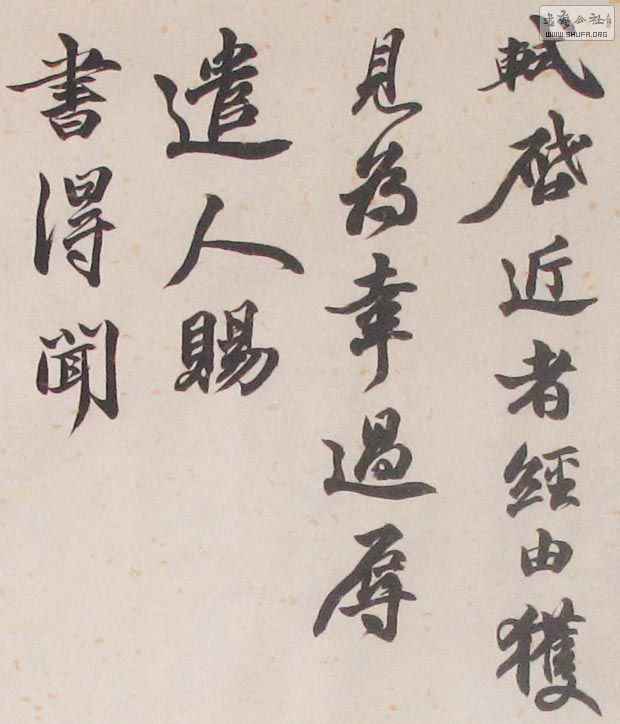 軾啓近者經由獲
見為幸過辱
遣人賜
書得聞
書藝公社
WWW.SHUFA.ORG